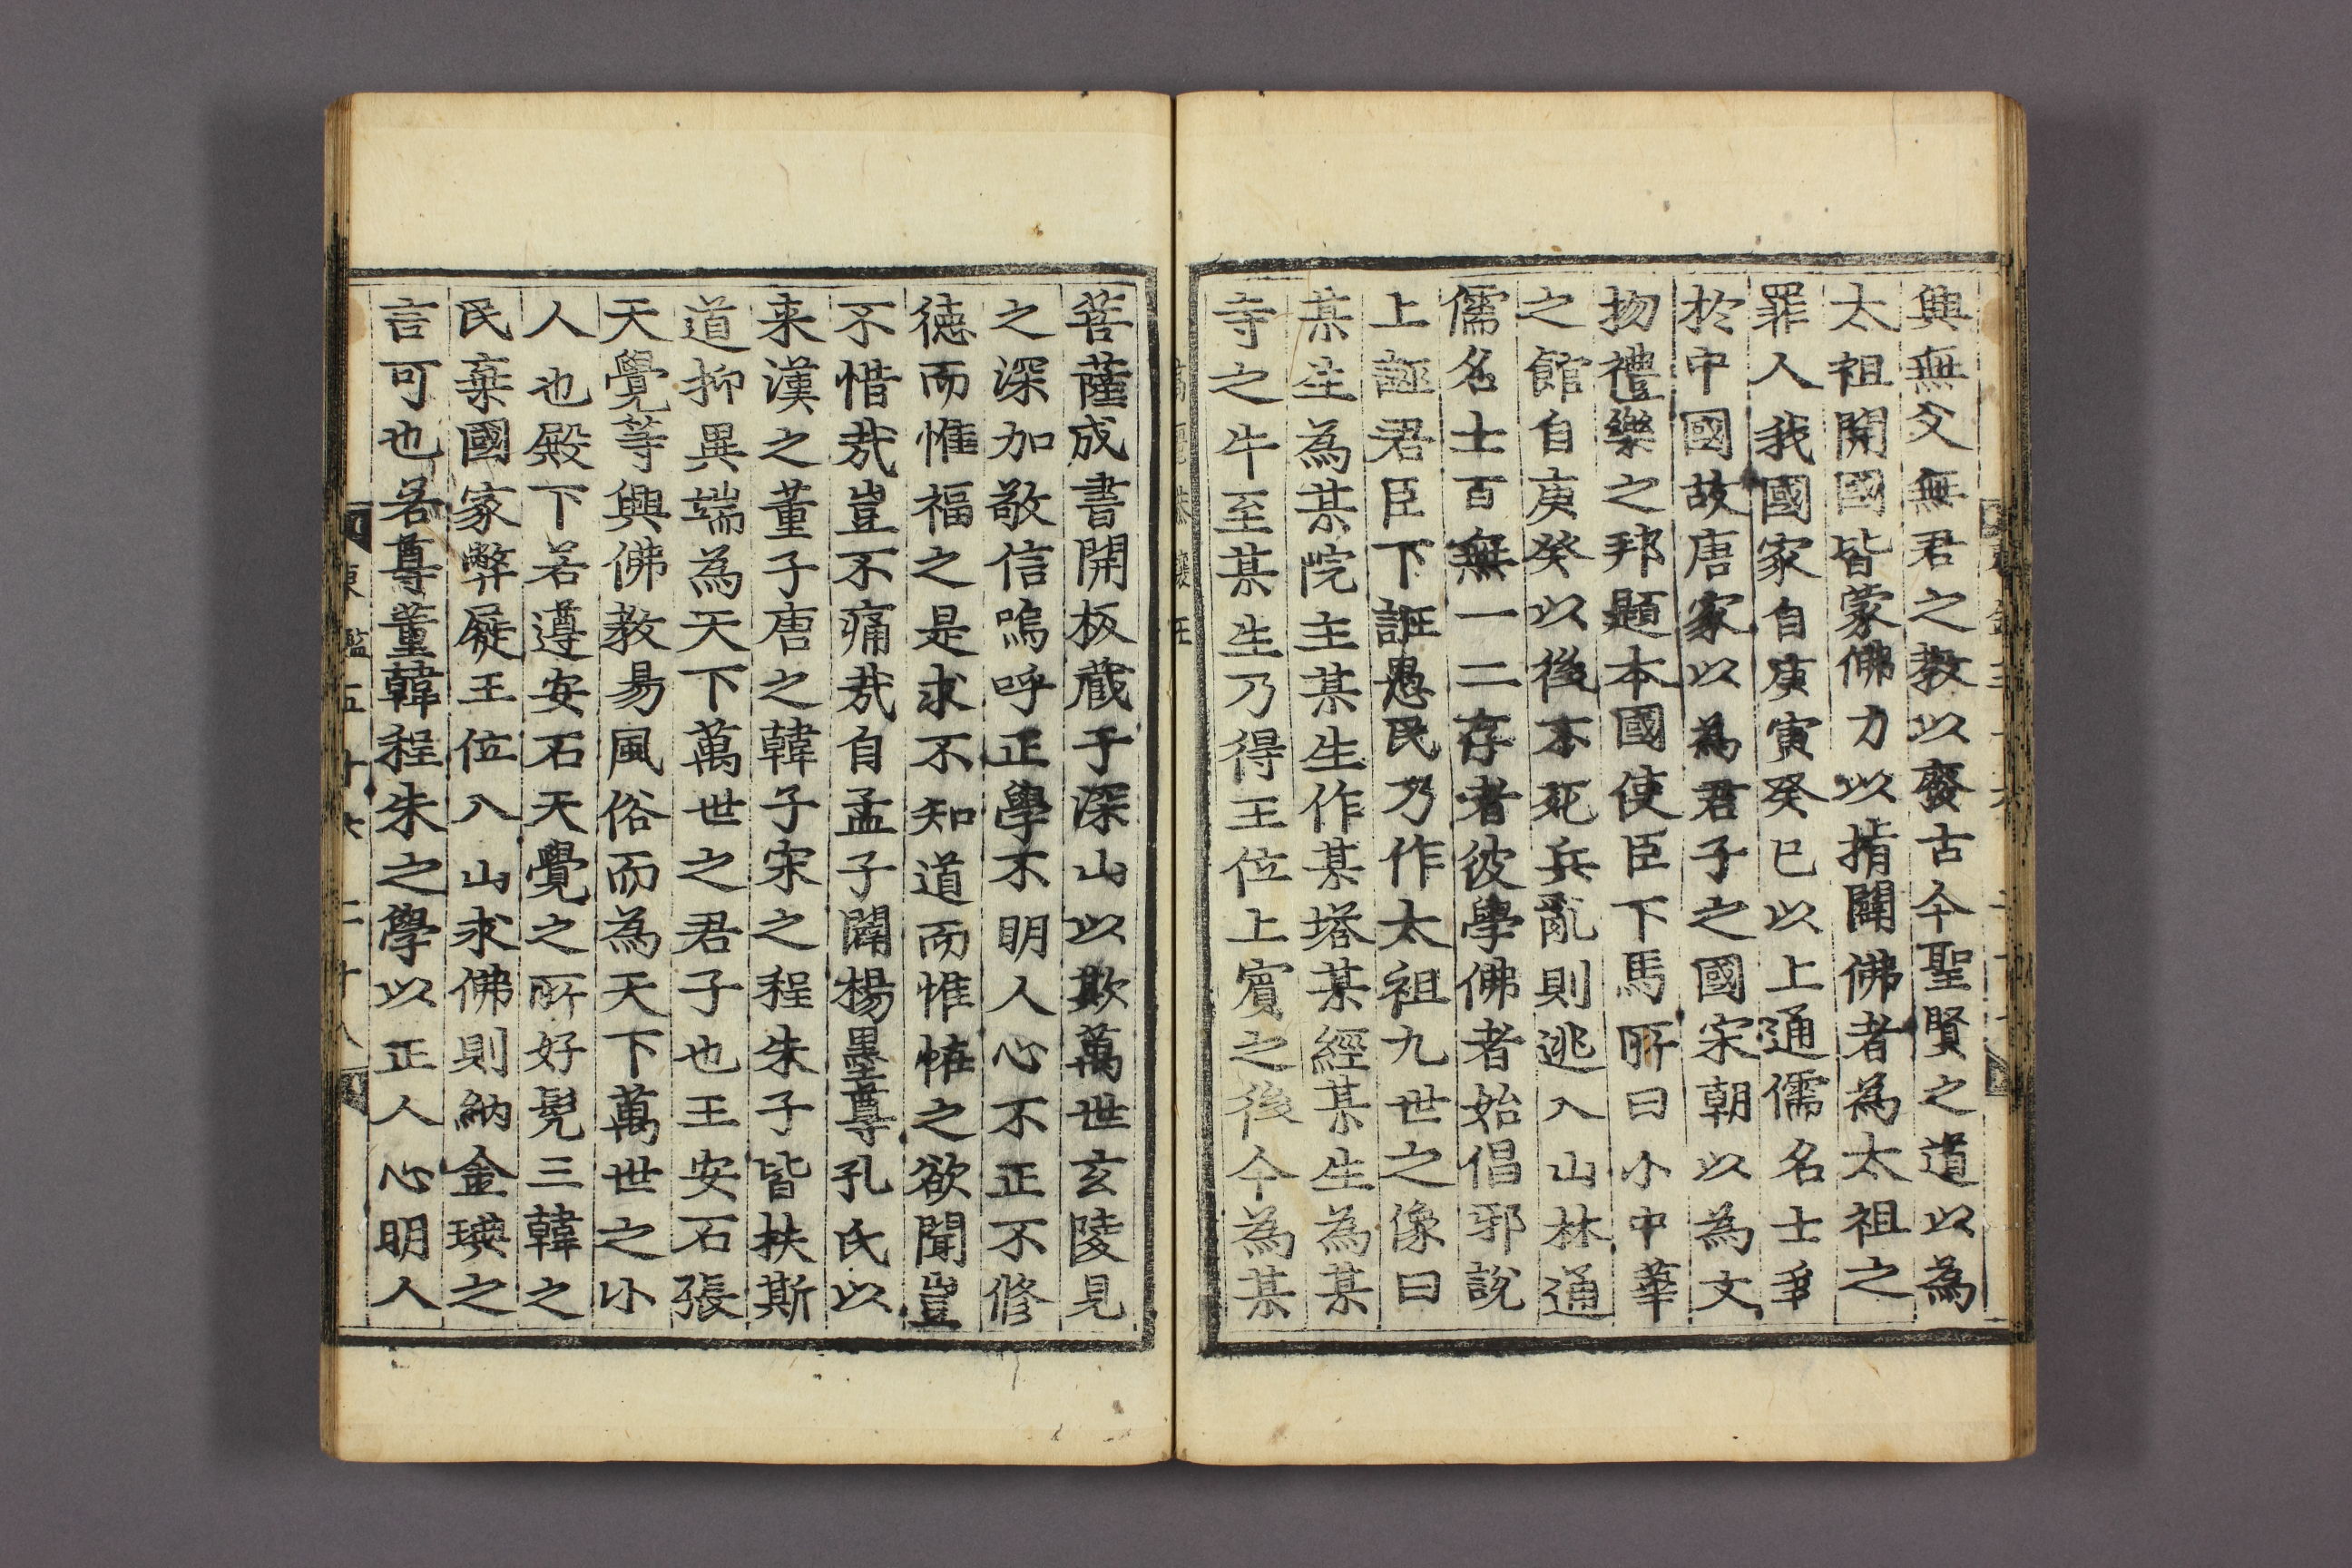 興無父無君之教以廢古今聖賢之道以為
太祖開國皆蒙佛力以指闢佛者為太祖之
罪人我國家自庚寅癸巳以上通儒名士多
於中國故唐家以為君子之國宋朝以為文
物禮樂之邦題本國使臣下馬所曰小中華
之館自庚癸以後不死兵亂則逃入山林通
儒名士百無一二存者彼學佛者始倡邪說
上誣君臣下誑愚民乃作太祖九世之像曰
某生為某院主某生作某塔某經某生為某
寺之牛至某生乃得王位上賓之後今為某
菩薩成書開板蔵于深山以欺萬世玄陵見
之深加敬信嗚呼正學不明人心不正不修
德而惟福之是求不知道而惟恠之欲聞豈
不惜㢤豈不痛㢤自孟子闢楊墨尊孔氏以
来漢之董子唐之韓子宋之程朱子皆扶斯
道抑異端為天下萬世之君子也王安石張
天覺等興佛教易風俗而為天下萬世之小
人也殿下若遵安石天覺之所好髡三韓之
民棄國家弊屣王位入山求佛則納金璤之
言可也若尊董韓程朱之學以正人心明人
東鑑五十六 二十八